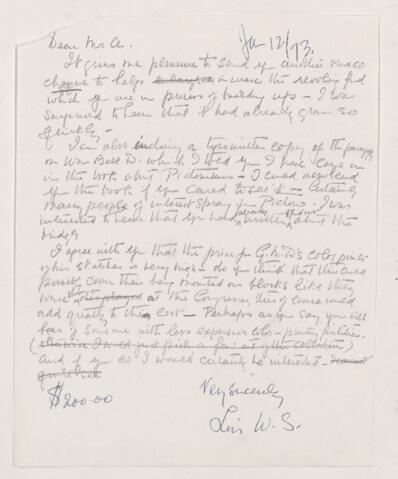 Dear Mrs A.
Jan 12/73.
It gives me pleasure to send you another small
cheque to help increase the revolving fund
which you are in process of building up - I was
surprised to hear that it had already grown so
quickly -
I am also enclosing a typewritten copy of the paragraph
on Wm Bell D. which I told you I have
in the book about Pictonians - I could also lend
you the book if you cared to see it - Certainly
many people of interest your Pictou. I was
interested to hear that you had already written about the
bridge
I agree with you that the price for G. M. D's color prints
of his sketches is very high - do you think that this could
possibly cover their being mounted on blocks like they
were at the Congress, this of course would
add greatly to the cost - Perhaps as you say you will
hear of someone with less expensive color - printing facilities.
( I would just pick a few out of the collection)
and if you do I would certainly be interested -
$200.00
Very Sincerely
W. S.